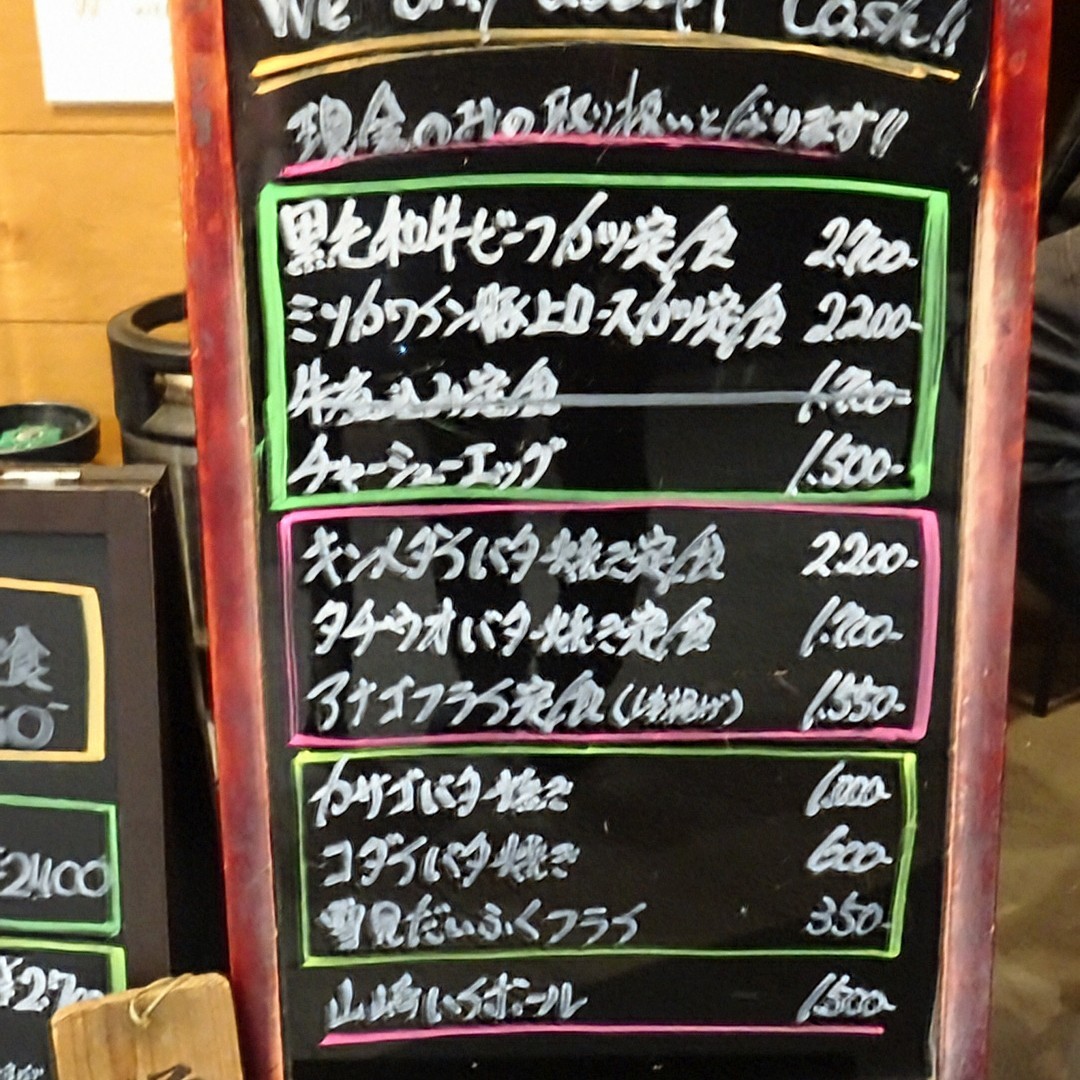 We only accept Cash!!
現金のみの取り扱いとなります!!
黒毛和牛ビーフカツ定食 2.700-
ミツカワイン豚上ロースカツ定食 2.200-
牛煮込み定食 1.700-
チャーシューエッグ 1.500-
キンメダイバター焼き定食 2.200-
タチウオバター焼き定食 1.700-
アナゴフライ定食(1本揚げ) 1.550-
カサゴバター焼き 1.000-
コダイバター焼き 600-
雪見だいふくフライ 350-
山崎ハイボール 1.500-
食
50-
¥2400
¥2.700